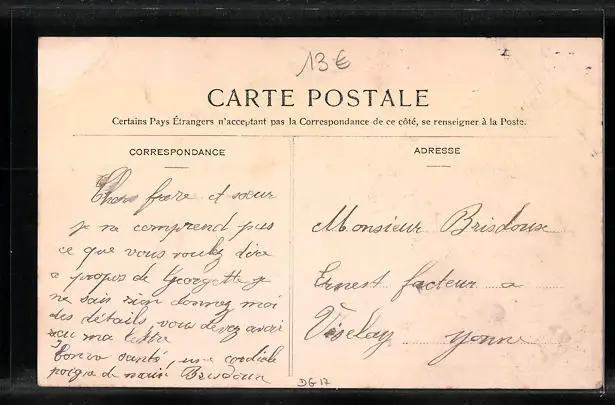 13€
CARTE POSTALE
Certains Pays Étrangers n'acceptant pas la Correspondance de ce côté, se renseigner à la Poste.
CORRESPONDANCE
Chers frere et sœur
je ne comprend pas
ce que vous voulez dire
a propos de Georgette je
ne sais rien donnez moi
des détails vous devez avoir
ma lettre
Bonne santé, une cordiale
poigne de main Brisdoux
ADRESSE
Monsieur Brisdoux
Ernest facteur a
Véselay yonne
DG17